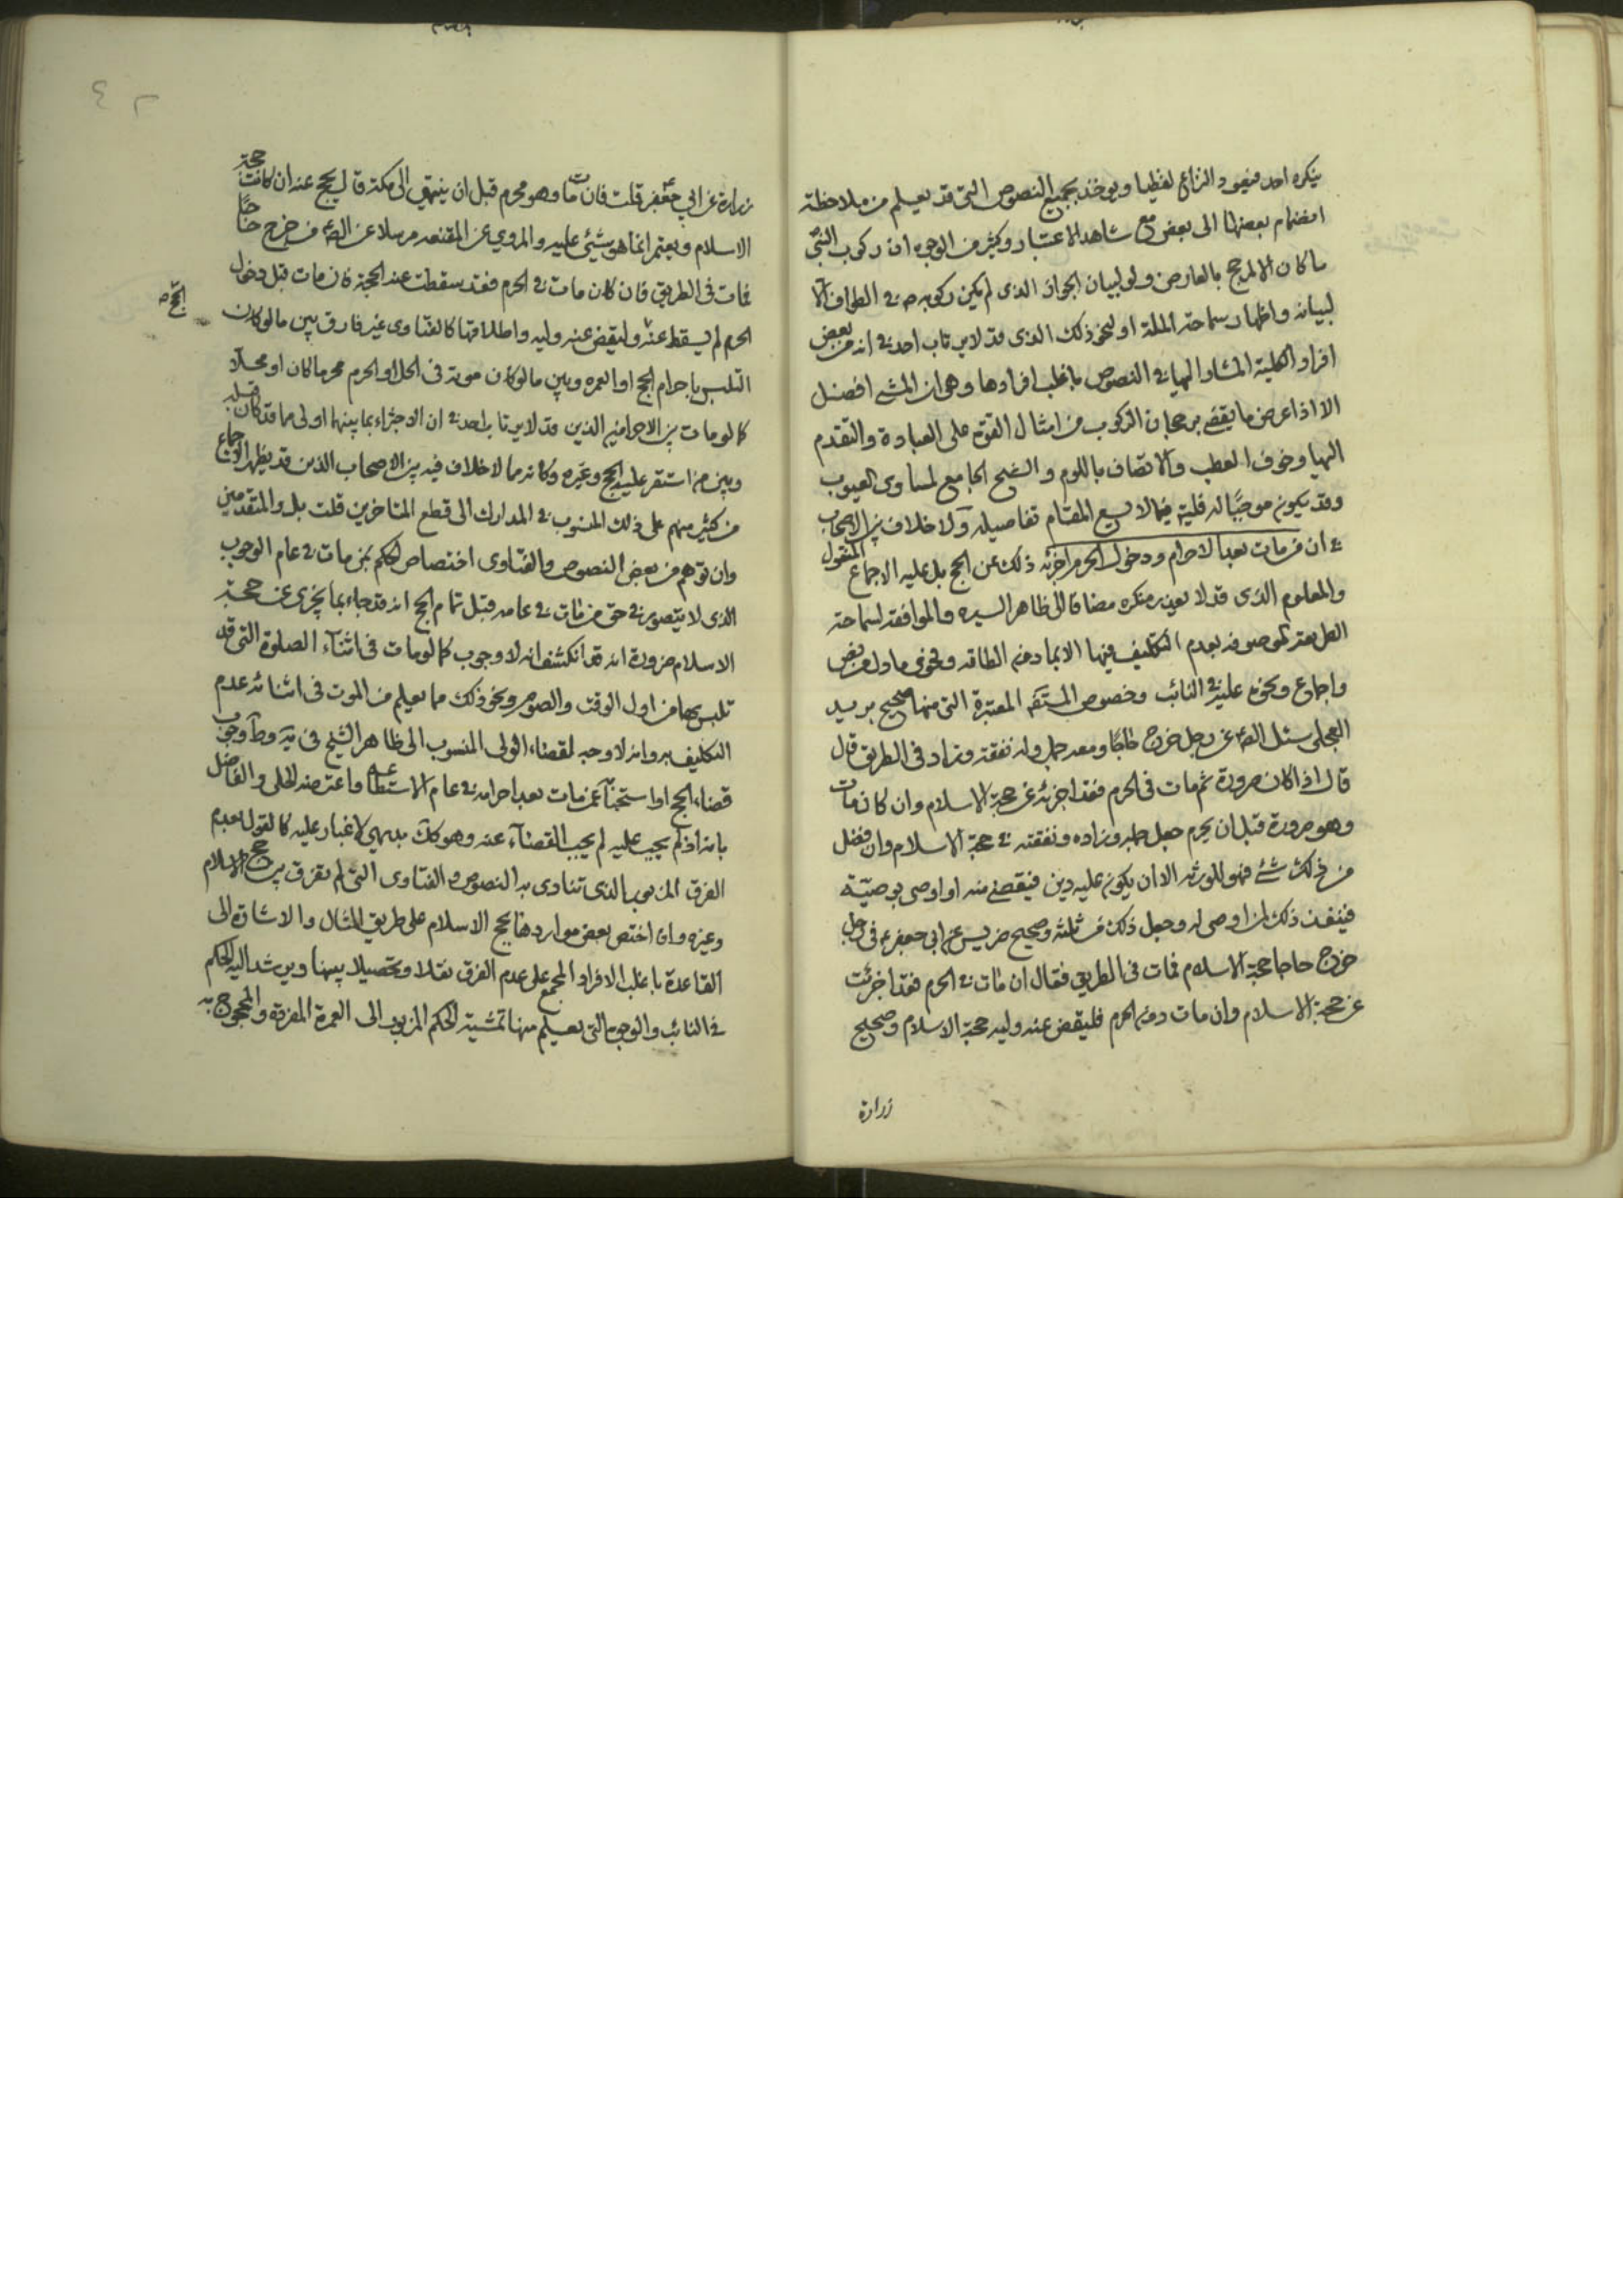 ينكره احد فيعود النزاع لفظيا ويوخذ بجميع النصوص التى قد يعلم من ملاحظة
انضمام بعضها الى بعض مع شاهد الاعتبار وكثير من الوجوه ان ركوب النبى
ما كان الا لمرجح بالعارض ولو لبيان الجواز الذى لم يكن ركوبه ص فى الطواف الا
لبيانه واظهار سماحة الملة او لنحو ذلك الذى قد لا يرتاب احد فى انه من بعض
افراد الكلية المشار اليها فى النصوص باغلب افرادها وهى ان المشى افضل
الا اذا عرض ما يقضى برجحان الركوب من امثال القوة على العبادة والتقدم
اليها وخوف العطب والاتصاف باللوم والشح الجامع لمساوى العيوب
وقد يكون موجبا له قلية فيما لا يسع المقام تفاصيله ولا خلاف بين الاصحاب
فى ان من مات بعد الاحرام ودخول الحرم اجزئه ذلك عن الحج بل عليه الاجماع المنقول
والمعلوم الذى قد لا يعذر منكره مضافا الى ظاهر السيره والموافقة لسماحة
الشريعة الموصوفه بعدم التكليف فيها الا بما دون الطاقه وفحوى ما دل من نص
واجماع ونحوه عليه فى النائب وخصوص المستفيضه المعتبرة التى منها صحيح بريد
العجلى سئل الصم عن رجل خرج حاجا ومعه جمل وله نفقة وزاد فى الطريق قال
قال اذا كان صرورة ثم مات فى الحرم فقد اجزئه عن حجة الاسلام وان كان مات
وهو صرورة قبل ان يحرم جعل جمله وزاده ونفقته فى حجة الاسلام وان فضل
من ذلك شئ فهو للورثه الا ان يكون عليه دين فيقضى منه او اوصى بوصيّة
فينفذ ذلك لمن اوصى له وجعل ذلك من ثلثه وصحيح ضريس عن ابى جعفر ع فى رجل
خرج حاجا حجة الاسلام فمات فى الطريق فقال ان مات فى الحرم فقد اجزئت
عن حجة الاسلام وان مات دون الحرم فليقض عنه وليه حجة الاسلام وصحيح
زرارة
زرارة عن ابي جعفر ع قلت فان مات وهو محرم قبل ان ينتهي الى مكة قال يحج عنه ان كانت حجة
الاسلام ويعتمر انما هو شئ عليه والمروي عن المقنعه مرسلا عن الصم من خرج حاجا
فمات فى الطريق فان كان مات فى الحرم فقد سقطت عنه الحجة فان مات قبل دخول
الحرم لم يسقط عنه الحج وليقض عنه وليه واطلاقها كالفتاوى غير فارق بين ما لو كان
التلبس باحرام الحج او العمره وبين ما لو كان موته فى الحل او الحرم محرما كان او محلا
كما لو مات بين الاحرامين الذين قد لا يرتاب احد فى ان الاجتزاء بما بينهما اولى مما قد كان قبله
وبين من استقر عليه الحج وغيره وكانه مما لا خلاف فيه بين الاصحاب الذين قد يظهر الاجماع
من كثير منهم على ذلك المنسوب فى المدارك الى قطع المتاخرين قلت بل والمتقدمين
وان توهم من بعض النصوص والفتاوى اختصاص الحكم بمن مات فى عام الوجوب
الذى لا يتصور فى حق من مات فى عامه قبل تمام الحج انه قد جاء بما يجزى عن حجة
الاسلام ضرورة انه قد انكشف انه لا وجوب كما لو مات فى اثناء الصلوة التى قد
تلبس بها من اول الوقت والصوم ونحو ذلك مما يعلم من الموت فى اثنائه عدم
التكليف به وانه لا وجه لقضاء الولى المنسوب الى ظاهر الشيخ فى يه وط وجوب
قضاء الحج او استحبابا عمن مات بعد احرامه فى عام الاستطاعه واعترضه الحلى والفاضل
بانه اذ لم يجب عليه لم يجب القضاء عنه وهو كك بديهي لا غبار عليه كالقول بعدم
الفرق المزبور الذى تنادى به النصوص والفتاوى التى لم تفرق بين حج الاسلام
وغيره وان اختص بعض مواردها بحج الاسلام على طريق المثال والاشارة الى
القاعدة باغلب الافراد المجمع على عدم الفرق نقلا وتحصيلا بينها ويرشد اليه الحكم
فى النائب والوجوه التى يعلم منها تمشية الحكم المزبور الى العمرة المفردة والمحجوج به